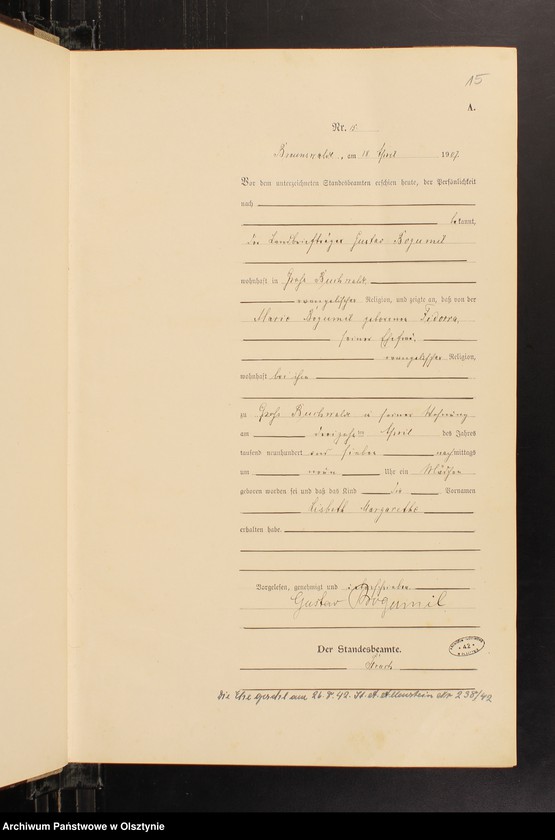 15
A.
Nr. 15
Braunswalde, am 18 April 1907.
Vor dem unterzeichneten Standesbeamten erschien heute, der Persönlichkeit
nach
bekannt,
der Landbriefträger Gustav Bogumil
wohnhaft in Groß Buchwalde
evangelischer Religion, und zeigte an, daß von der
Marie Bogumil geborenen Fidorra,
seiner Ehefrau,
evangelischer Religion,
wohnhaft bei ihm
zu Groß Buchwalde in seiner Wohnung
am dreizehnten April des Jahres
tausend neunhundert und sieben nachmittags
um neun Uhr ein Mädchen
geboren worden sei und daß das Kind die Vornamen
Lisbeth Margarethe
erhalten habe.
Vorgelesen, genehmigt und unterschrieben
Gustav Bogumil
Der Standesbeamte.
42
Die Ehe gesch am 26. 42. St. A. Allenstein Nr 238/42
Archiwum Państwowe w Olsztynie